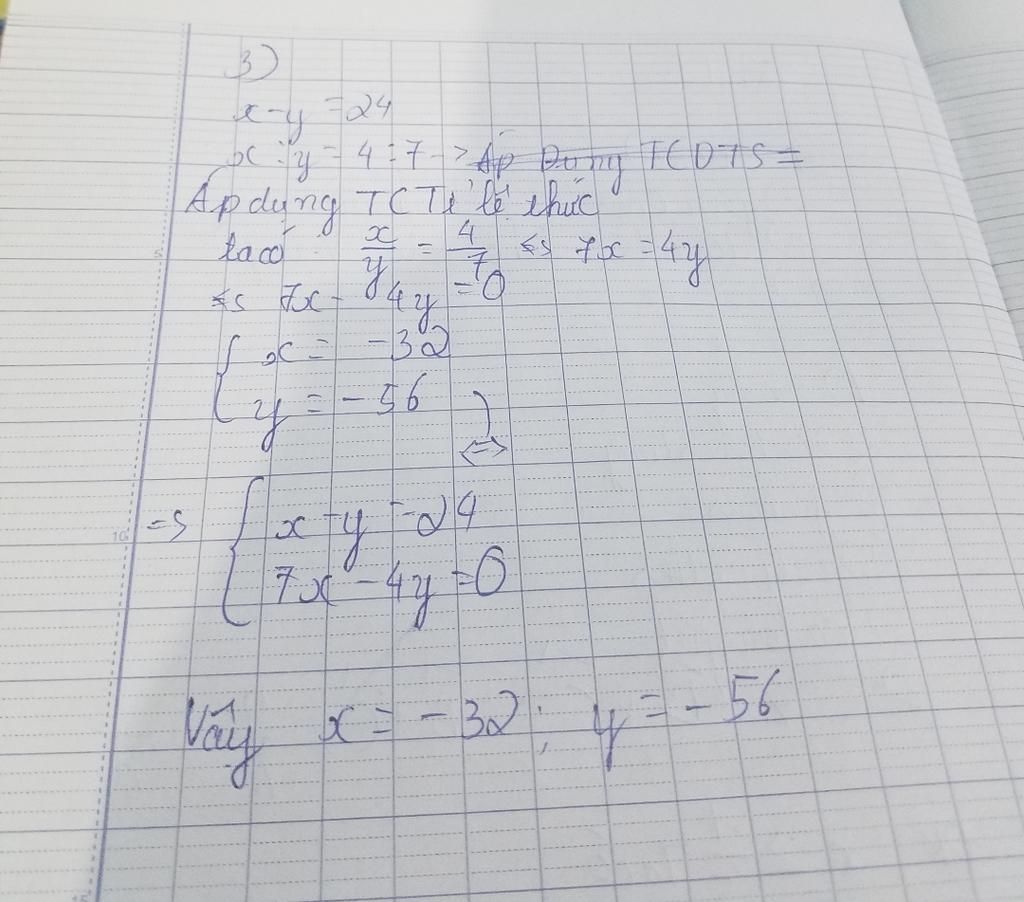 3)
x - y = 24
x : y = 4 : 7 => Áp Dụng TCDTS =
Áp dụng TC Tỉ lệ thức
ta có x/y = 4/7 <=> 7x = 4y
<=> 7x - 4y = 0
{ x = -32
{ y = -56
<=>
=> { x - y = 24
{ 7x - 4y = 0
Vậy x = -32 ; y = -56